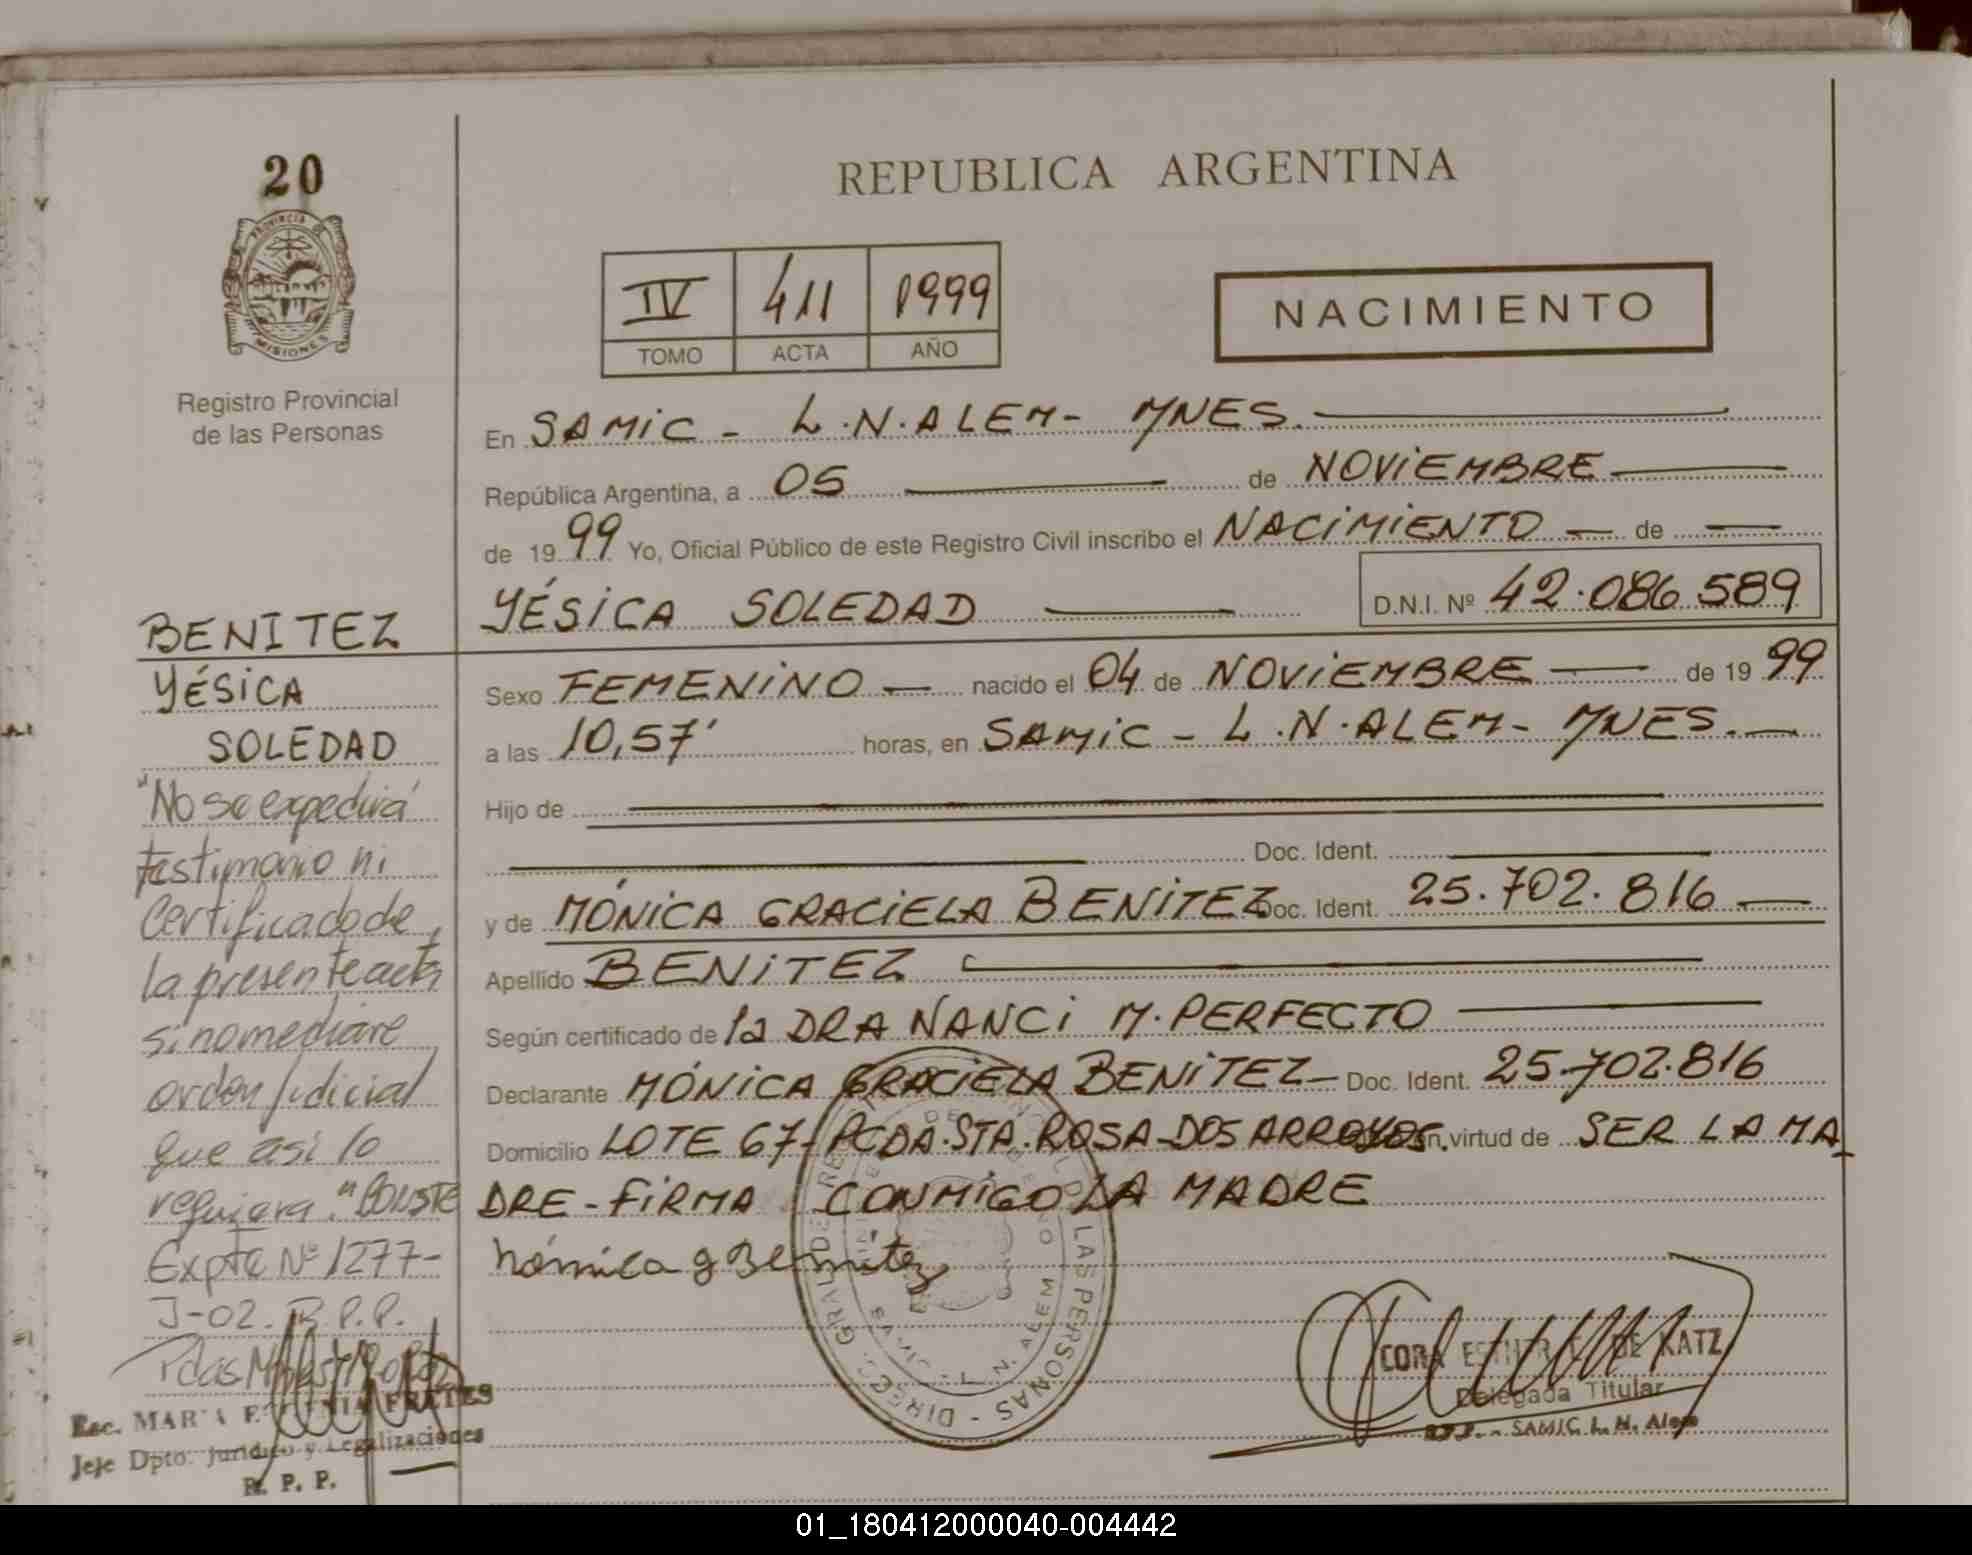 20
PROVINCIA DE
MISIONES
Registro Provincial
de las Personas
REPUBLICA ARGENTINA
IV 411 1999
TOMO ACTA AÑO
NACIMIENTO
En SAMIC - L.N.ALEM - MNES.
República Argentina, a 05 de NOVIEMBRE
de 1999 Yo, Oficial Público de este Registro Civil inscribo el NACIMIENTO de
YÉSICA SOLEDAD D.N.I. Nº 42.086.589
Sexo FEMENINO nacido el 04 de NOVIEMBRE de 1999
a las 10,57' horas, en SAMIC - L.N.ALEM - MNES.
Hijo de
Doc. Ident.
y de MÓNICA GRACIELA BENITEZ Doc. Ident. 25.702.816
Apellido BENITEZ
Según certificado de la DRA NANCI M. PERFECTO
Declarante MÓNICA GRACIELA BENITEZ - Doc. Ident. 25.702.816
Domicilio LOTE 67- PCDA.STA.ROSA-DOS ARROYOS. en virtud de SER LA MA
DRE - FIRMA CONMIGO LA MADRE
Mónica g Benitez
BENITEZ
YÉSICA
SOLEDAD
"No se expedirá
testimonio ni
Certificado de
la presente acta
si no mediare
orden judicial
que así lo
requiera." CONSTE
Expte Nº 1277-
J-02. R.P.P.
Pdas
Esc. MARIA EUGENIA FRETES
Jefe Dpto. Jurídico y Legalizaciones
R. P. P.
LAS PERSONAS - DIREC. GRAL DE
SAMIC - L. N. ALEM
CORA ESTHER DE KATZ
Delegada Titular
SAMIC L. N. Alem
01_180412000040-004442